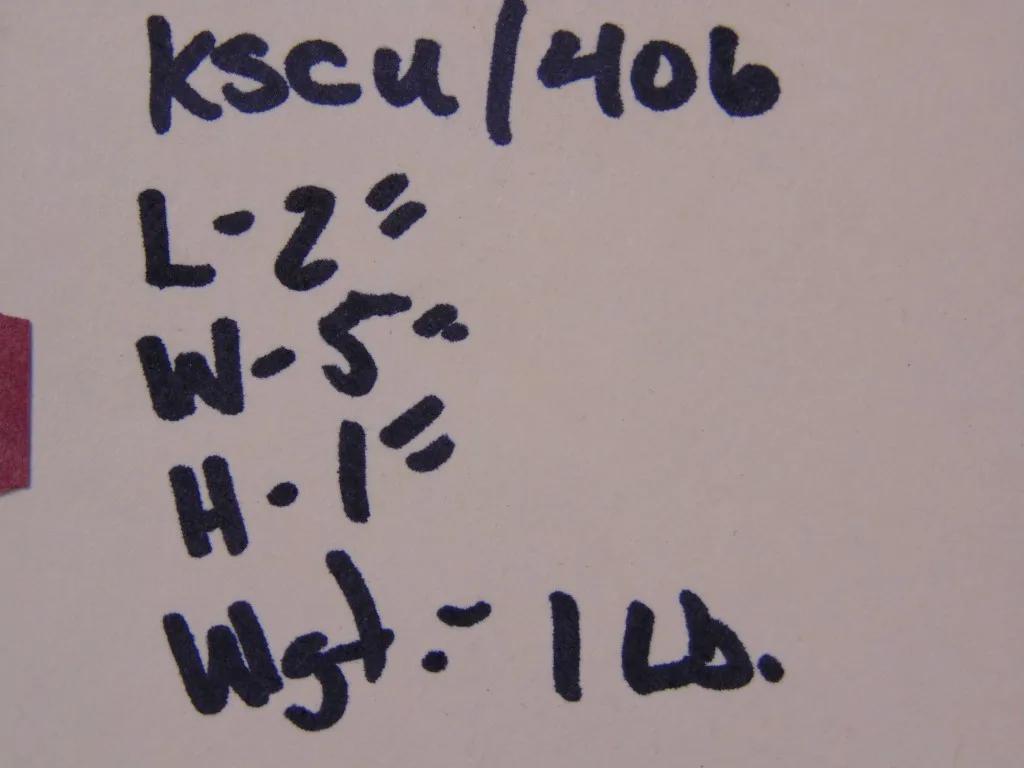 KSCU/406
L-2"
W-5"
H-1"
Wgt.- 1 Lb.